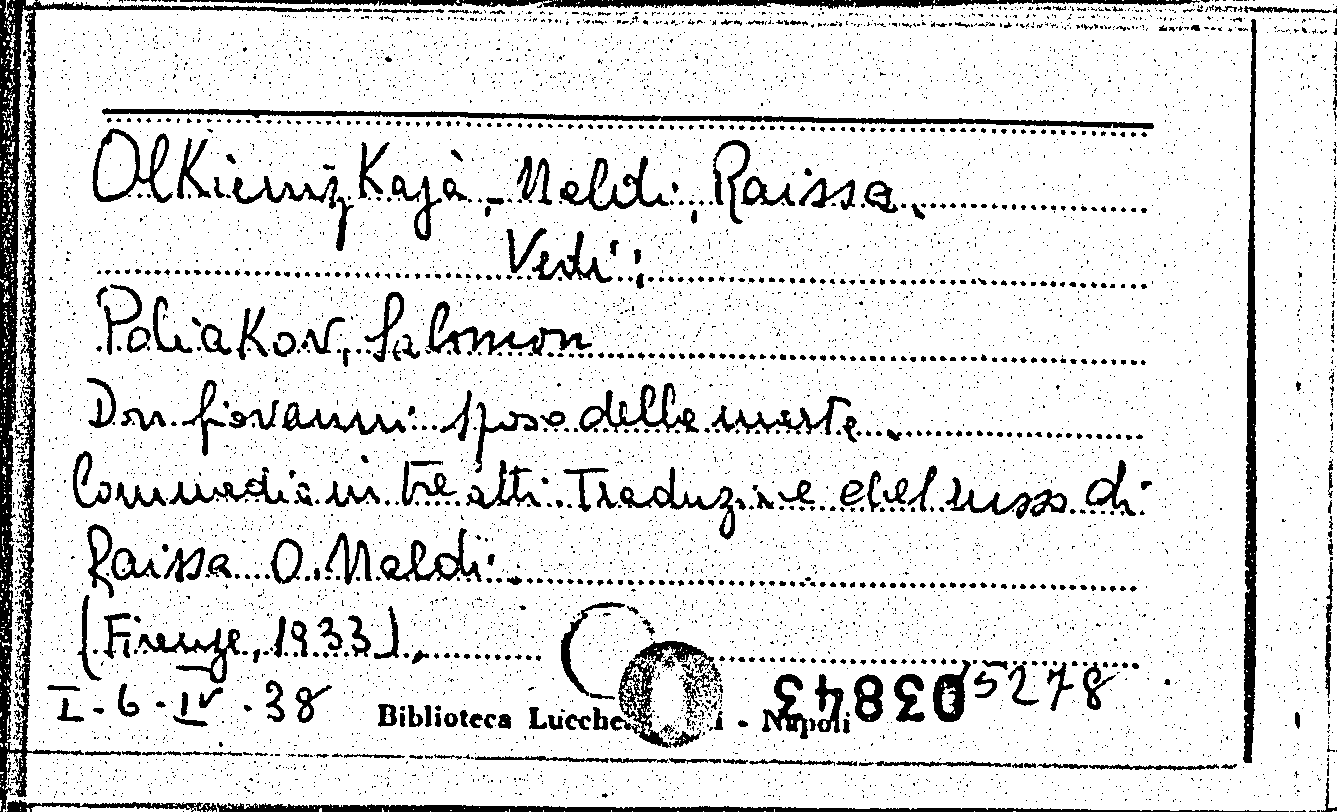 Olkienizkajà - Naldi, Raissa.
Vedi:
Poliakov, Salomon
Don Giovanni sposo della morte.
Commedia in tre atti. Traduzione dal russo di
Raissa O. Naldi.
(Firenze, 1933).
I-6-IV-38
Biblioteca Lucche i - Napoli
03843
5278